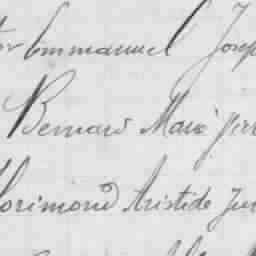 Emmanuel Josep
Bernard Marie Pier
lorimond Aristide Ju